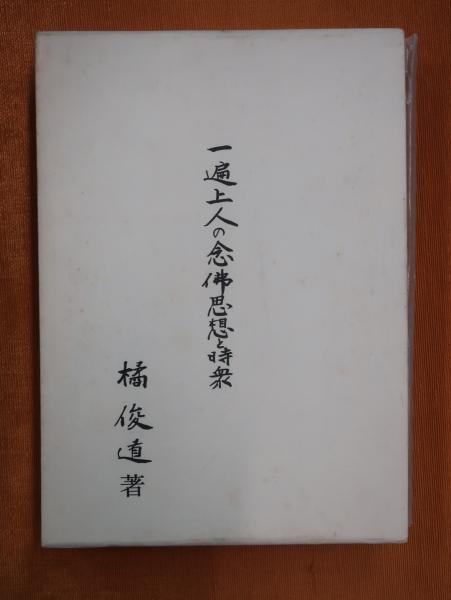 一遍上人の念佛思想と時衆
橘俊道著